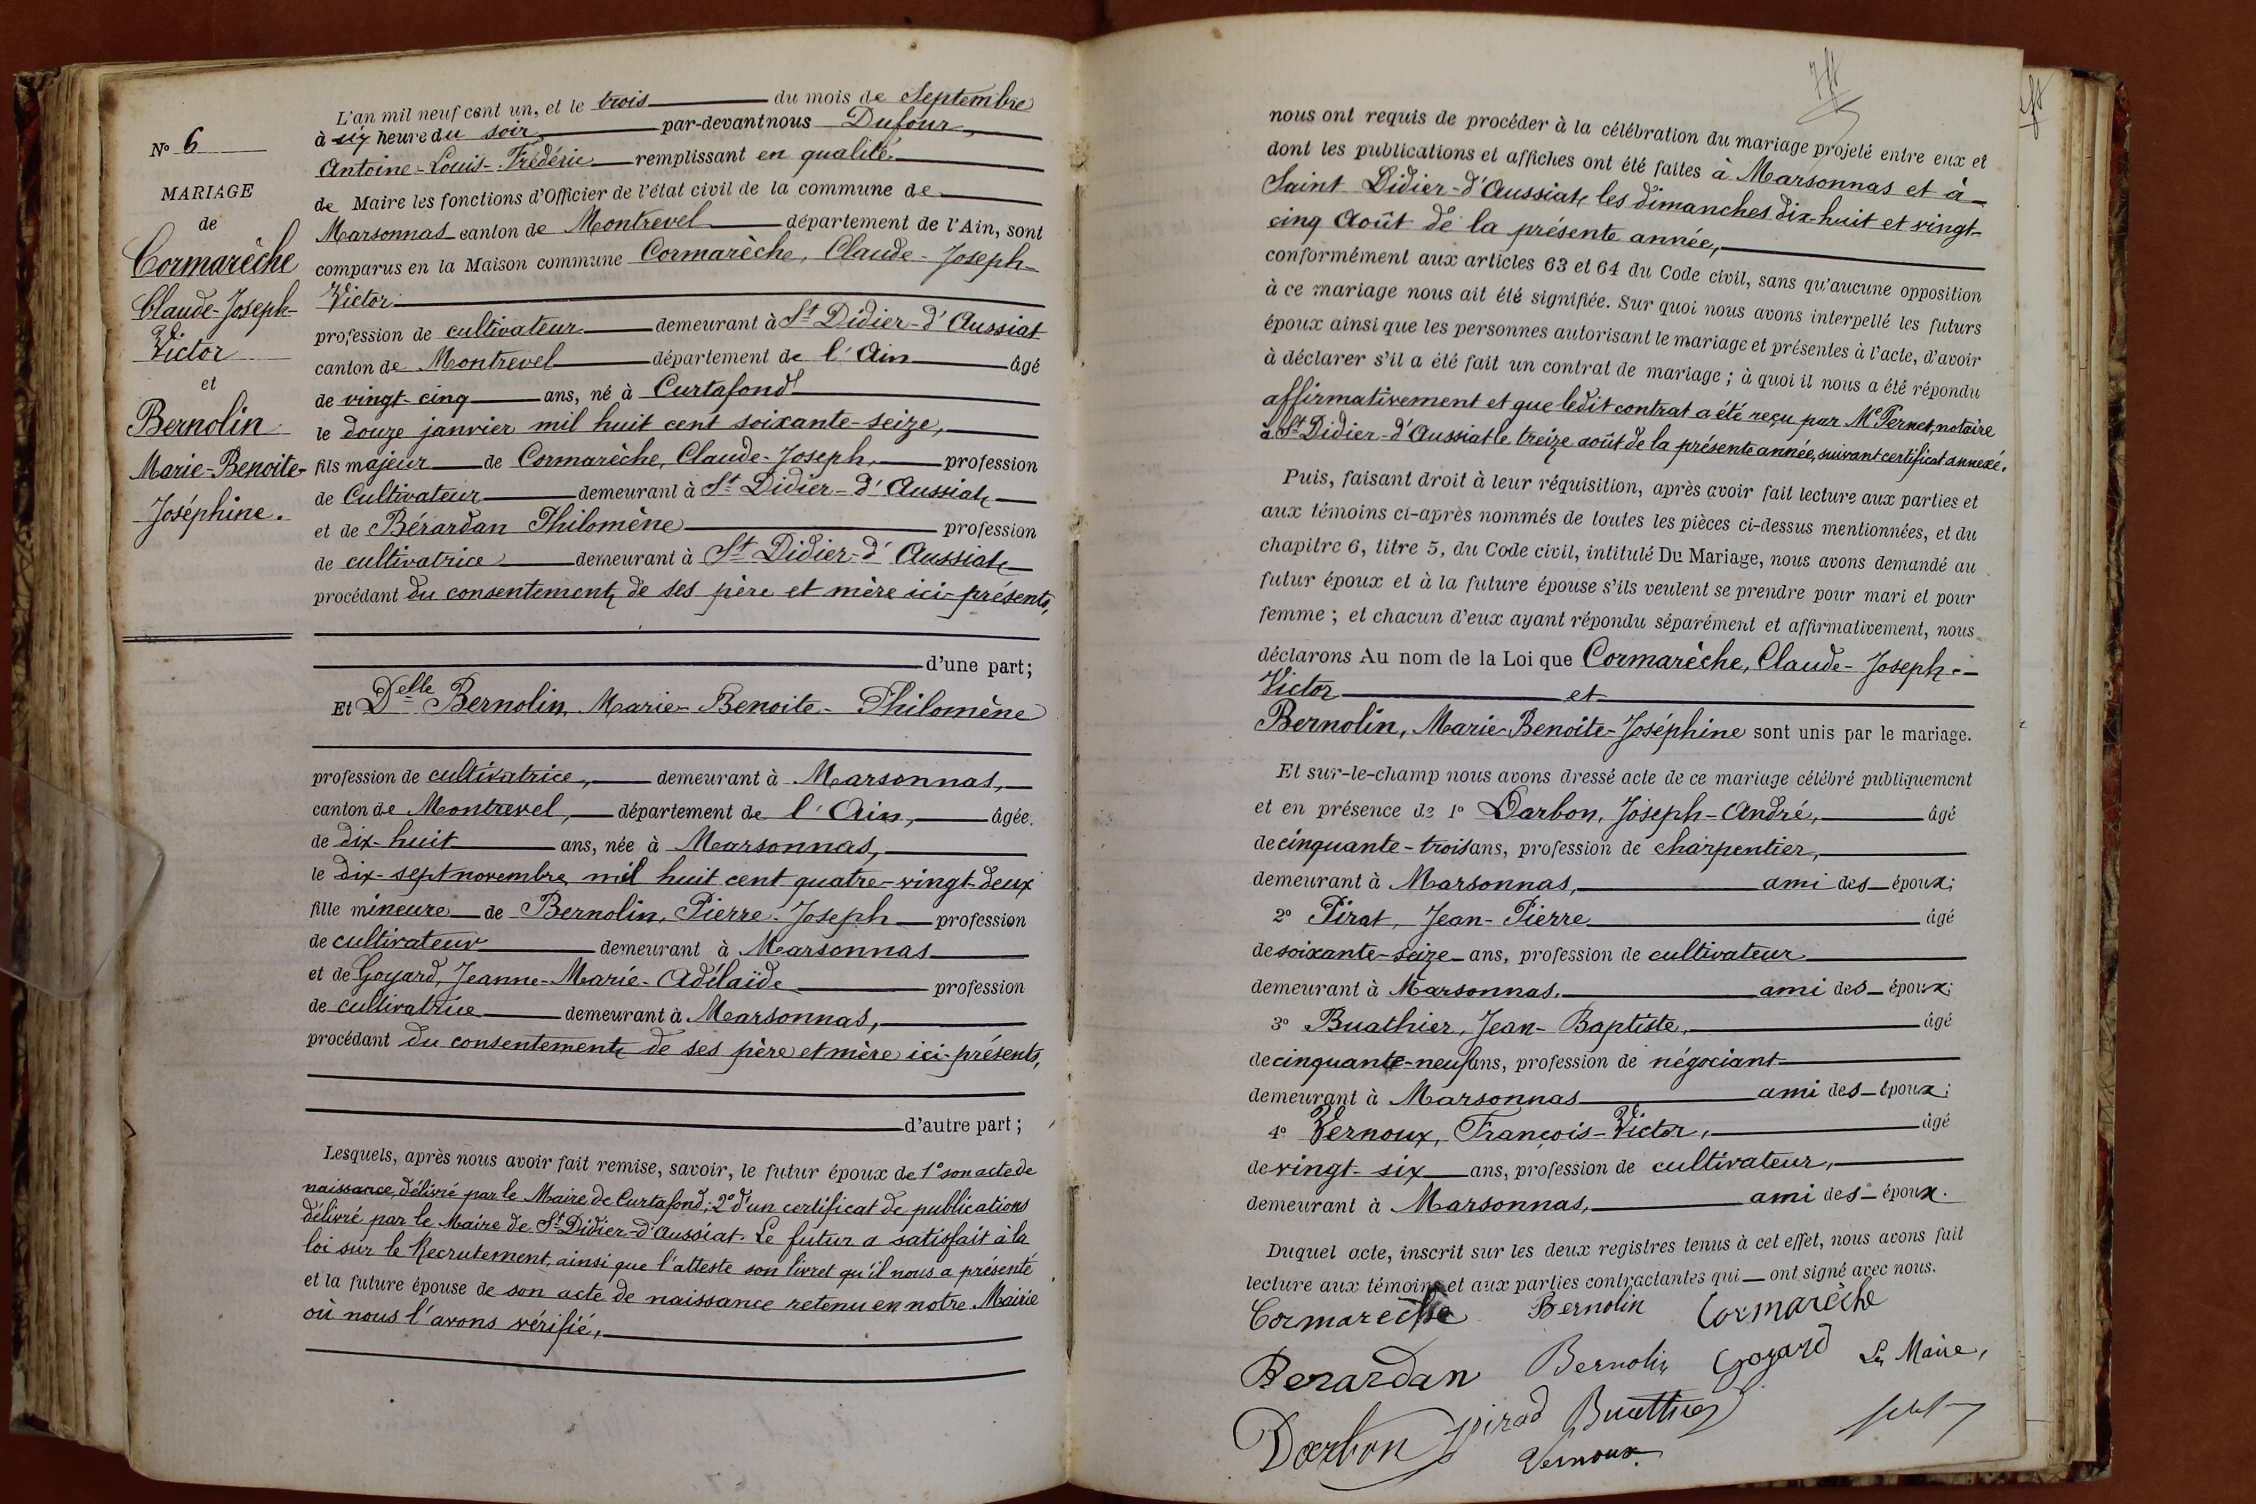 L'an mil neuf cent un, et le trois du mois de Septembre
à six heure du soir par-devant nous Dufour,
Antoine-Louis-Frédéric remplissant en qualité
de Maire les fonctions d'Officier de l'état civil de la commune de
Marsonnas canton de Montrevel département de l'Ain, sont
comparus en la Maison commune Cormarèche, Claude-Joseph-
Victor
profession de cultivateur demeurant à St Didier-d'Aussiat
canton de Montrevel département de l'Ain âgé
de vingt-cinq ans, né à Curtafond
le douze janvier mil huit cent soixante-seize,
fils majeur de Cormarèche, Claude-Joseph, profession
de Cultivateur demeurant à St Didier-d'Aussiat,
et de Bérardan Philomène profession
de cultivatrice demeurant à St Didier-d'Aussiat
procédant du consentement de ses père et mère ici-présents,
d'une part;
Et Delle Bernolin, Marie-Benoite-Philomène
profession de cultivatrice, demeurant à Marsonnas,
canton de Montrevel, département de l'Ain, âgée
de dix-huit ans, née à Marsonnas,
le dix-sept novembre mil huit cent quatre-vingt-deux
fille mineure de Bernolin, Pierre-Joseph profession
de cultivateur demeurant à Marsonnas
et de Goyard, Jeanne-Marie-Adélaïde profession
de cultivatrice demeurant à Marsonnas,
procédant du consentement de ses père et mère ici-présents,
d'autre part;
Lesquels, après nous avoir fait remise, savoir, le futur époux de 1° son acte de
naissance, délivré par le Maire de Curtafond; 2° d'un certificat de publications
délivré par le Maire de St Didier-d'Aussiat. Le futur a satisfait à la
loi sur le Recrutement, ainsi que l'atteste son livret qu'il nous a présenté
et la future épouse de son acte de naissance retenu en notre Mairie
où nous l'avons vérifié,
N° 6
MARIAGE
de
Cormarèche
Claude-Joseph-
Victor
et
Bernolin
Marie-Benoite-
Joséphine.
nous ont requis de procéder à la célébration du mariage projeté entre eux et
dont les publications et affiches ont été faites à Marsonnas et à
Saint Didier-d'Aussiat, les dimanches dix-huit et vingt-
cinq Août de la présente année,
conformément aux articles 63 et 64 du Code civil, sans qu'aucune opposition
à ce mariage nous ait été signifiée. Sur quoi nous avons interpellé les futurs
époux ainsi que les personnes autorisant le mariage et présentes à l'acte, d'avoir
à déclarer s'il a été fait un contrat de mariage; à quoi il nous a été répondu
affirmativement et que ledit contrat a été reçu par Me Pernet, notaire
à St Didier-d'Aussiat le treize août de la présente année, suivant certificat annexé.
Puis, faisant droit à leur réquisition, après avoir fait lecture aux parties et
aux témoins ci-après nommés de toutes les pièces ci-dessus mentionnées, et du
chapitre 6, titre 5, du Code civil, intitulé Du Mariage, nous avons demandé au
futur époux et à la future épouse s'ils veulent se prendre pour mari et pour
femme; et chacun d'eux ayant répondu séparément et affirmativement, nous
déclarons Au nom de la Loi que Cormarèche, Claude-Joseph-
Victor et
Bernolin, Marie-Benoite-Joséphine sont unis par le mariage.
Et sur-le-champ nous avons dressé acte de ce mariage célébré publiquement
et en présence de 1° Darbon, Joseph-André, âgé
de cinquante-trois ans, profession de charpentier,
demeurant à Marsonnas, ami des époux;
2° Pirat, Jean-Pierre âgé
de soixante-seize ans, profession de cultivateur
demeurant à Marsonnas, ami des époux;
3° Buathier, Jean-Baptiste, âgé
de cinquante-neuf ans, profession de négociant
demeurant à Marsonnas ami des époux;
4° Vernoux, François-Victor, âgé
de vingt-six ans, profession de cultivateur,
demeurant à Marsonnas, ami des époux.
Duquel acte, inscrit sur les deux registres tenus à cet effet, nous avons fait
lecture aux témoins et aux parties contractantes qui ont signé avec nous.
Cormarèche Bernolin Cormarèche
Berardan Bernolin Goyard Le Maire,
Darbon Pirad Buathier
Vernoux